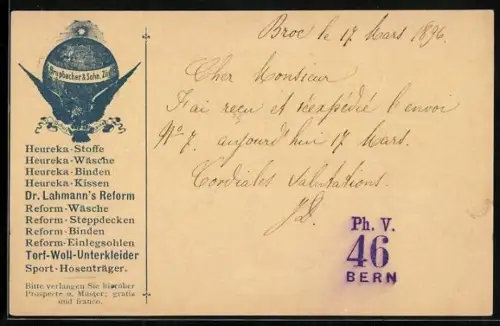 & Sohn, Zürich
Heureka-Stoffe
Heureka-Wäsche
Heureka-Binden
Heureka-Kissen
Dr. Lahmann's Reform
Reform-Wäsche
Reform-Steppdecken
Reform-Binden
Reform-Einlegsohlen
Torf-Woll-Unterkleider
Sport-Hosenträger.
Bitte verlangen Sie hierüber
Prospecte u. Muster; gratis
und franco.
Broc le 17 Mars 1896.
Cher Monsieur
J'ai reçu et réexpédié l'envoi
No 7. aujourd'hui 17 Mars.
Cordiales salutations.
Ph. V.
46
BERN